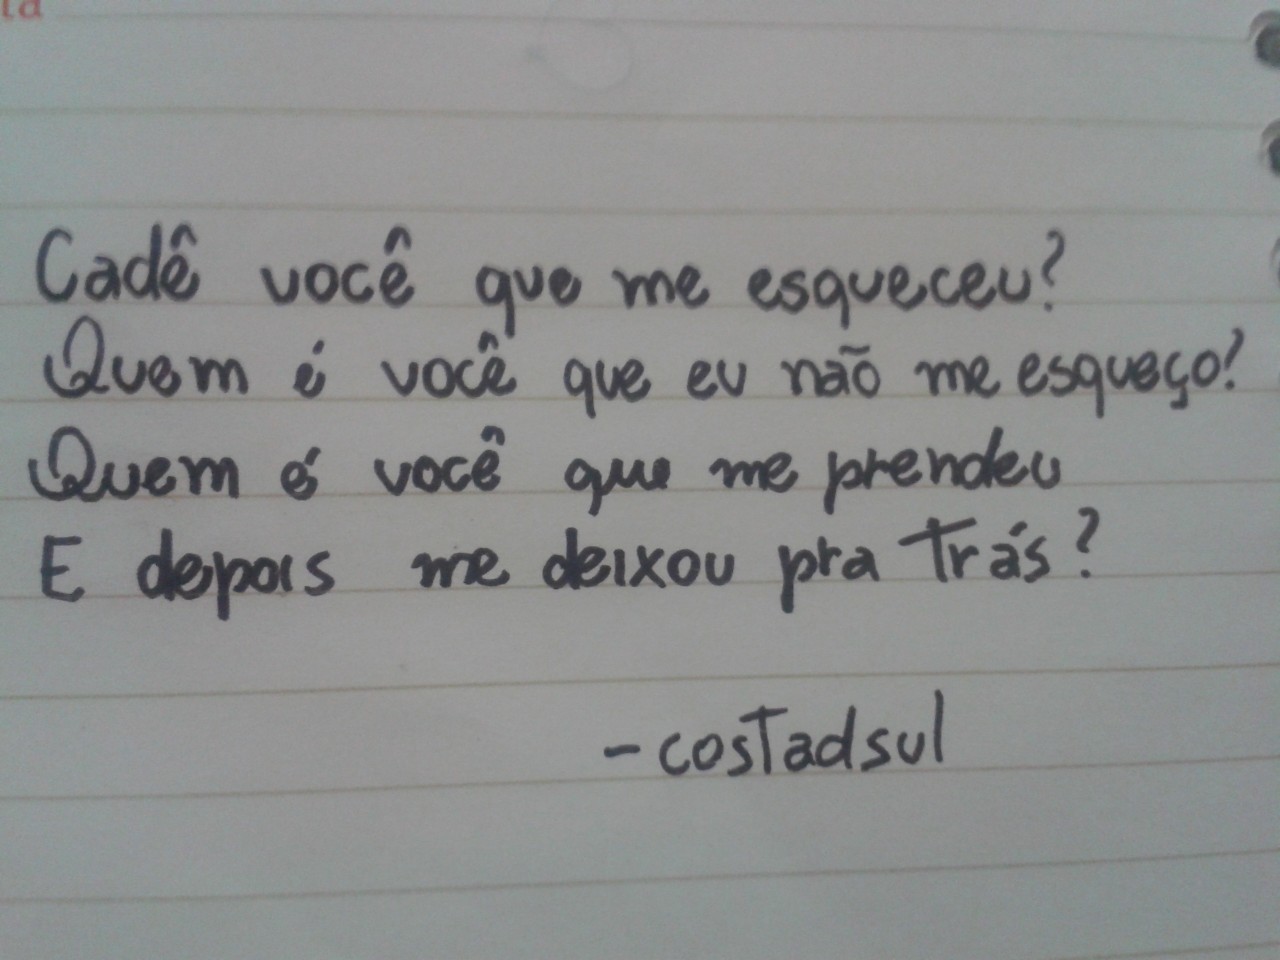 ta
Cadê você que me esqueceu?
Quem é você que eu não me esqueço?
Quem é você que me prendeu
E depois me deixou pra trás?
-costadsul